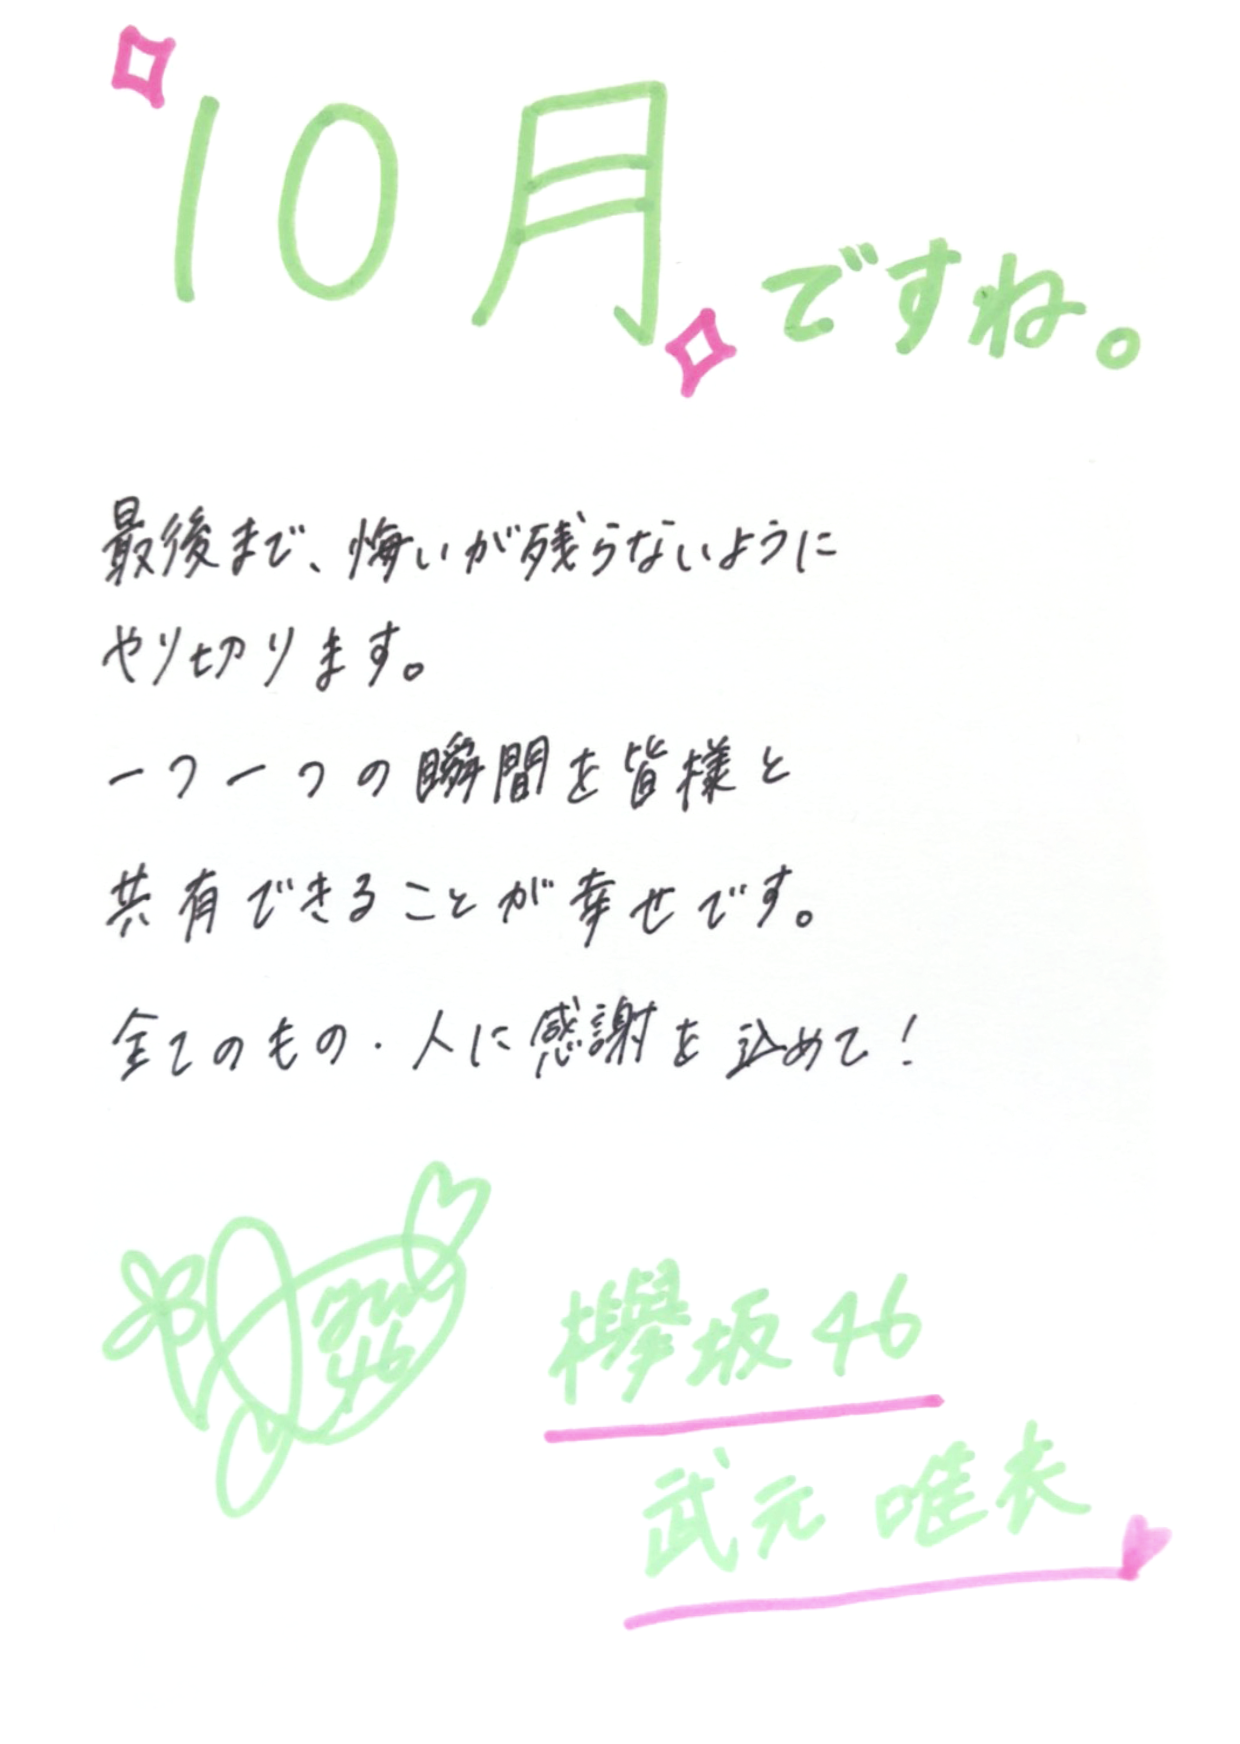 10月ですね。
最後まで、悔いが残らないように
やり切ります。
一つ一つの瞬間を皆様と
共有できることが幸せです。
全てのもの・人に感謝を込めて!
46
欅坂46
武元 唯衣